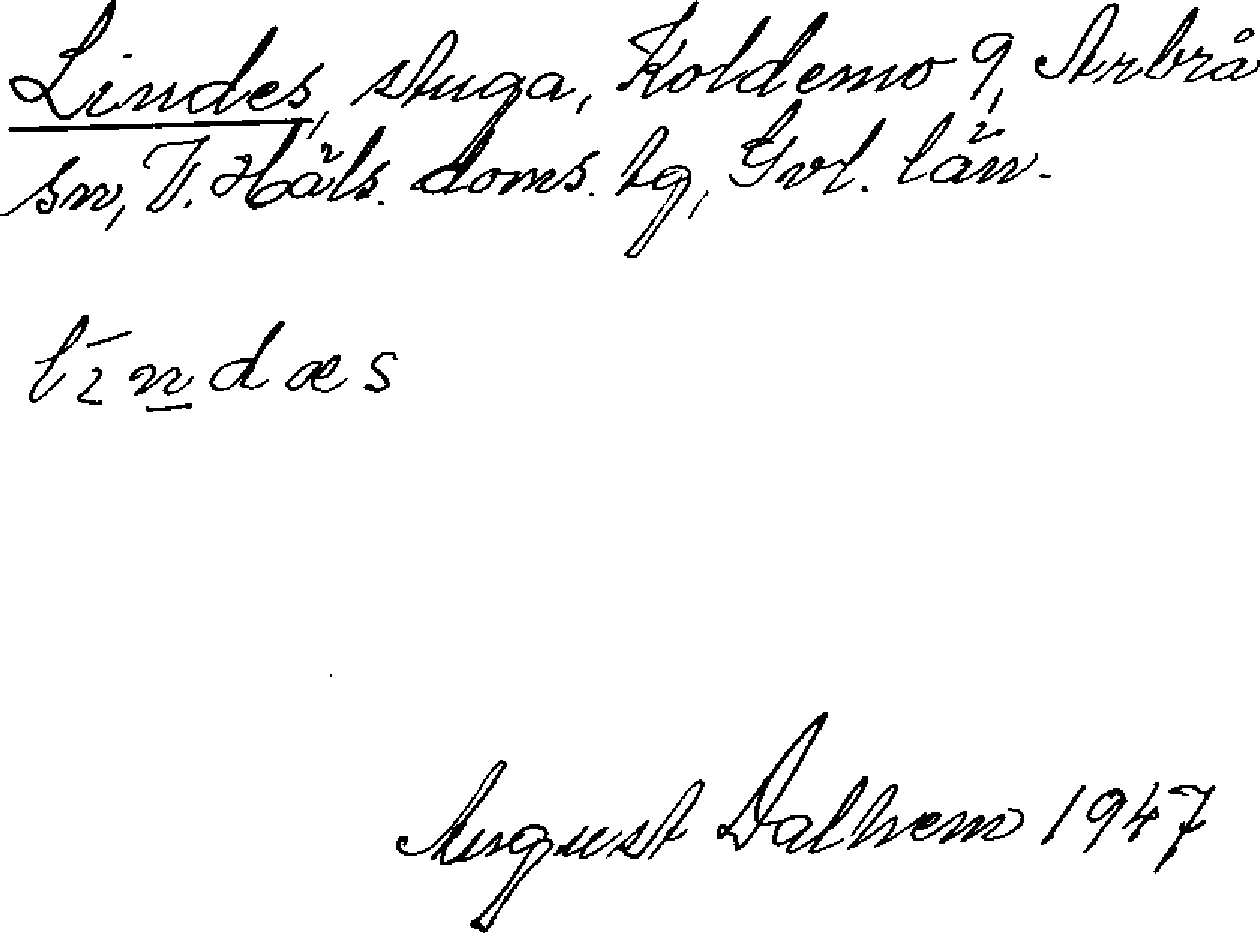 Lindes, stuga, Koldemo 9, Arbrå
sn, V. Häls. doms. tg, Gvl. län.
līn̲dæs
August Dalhem 1947